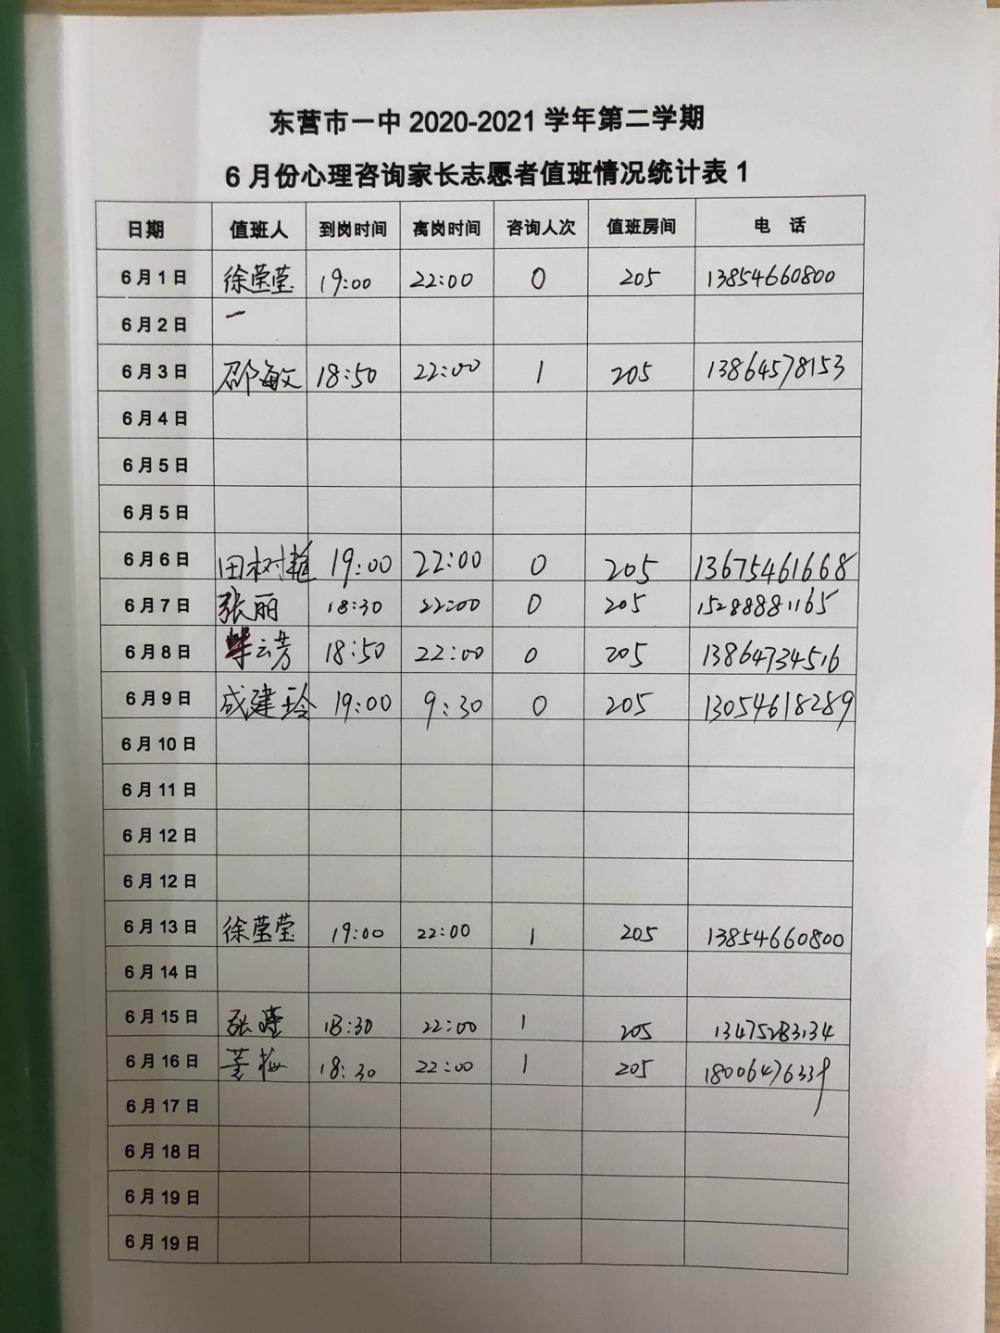 东营市一中 2020-2021 学年第二学期
6 月份心理咨询家长志愿者值班情况统计表 1
日期 值班人 到岗时间 离岗时间 咨询人次 值班房间 电 话
6 月 1 日 徐莹莹 19:00 22:00 0 205 13854660800
6 月 2 日 一
6 月 3 日 邵敏 18:50 22:00 1 205 13864578153
6 月 4 日
6 月 5 日
6 月 5 日
6 月 6 日 田树 19:00 22:00 0 205 13675461668
6 月 7 日 张丽 18:30 22:00 0 205 15288881165
6 月 8 日 云芳 18:50 22:00 0 205 13864734516
6 月 9 日 成建玲 19:00 9:30 0 205 13054618289
6 月 10 日
6 月 11 日
6 月 12 日
6 月 12 日
6 月 13 日 徐莹莹 19:00 22:00 1 205 13854660800
6 月 14 日
6 月 15 日 张 18:30 22:00 1 205 13475283134
6 月 16 日 梅 18:30 22:00 1 205 18006476339
6 月 17 日
6 月 18 日
6 月 19 日
6 月 19 日